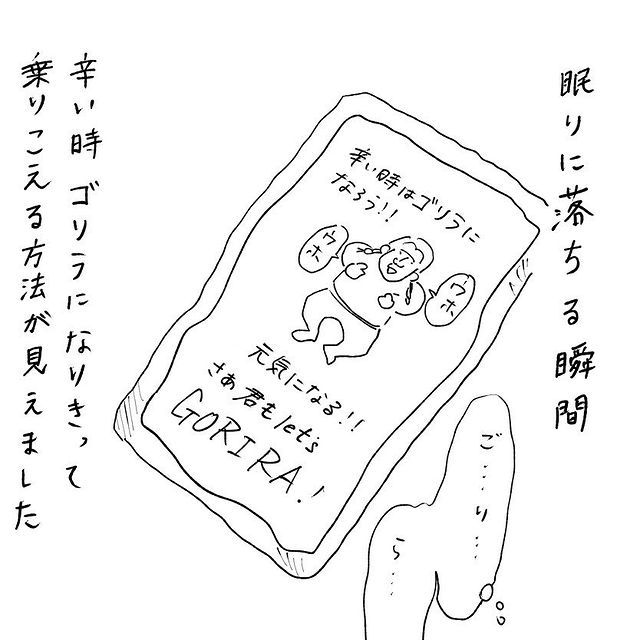 眠りに落ちる瞬間
辛い時はゴリラに
なろう!!
ウホ
ウホ
元気になる!!
さあ君もlet's
GORIRA!
ご…り…
ら…
辛い時ゴリラになりきって
乗りこえる方法が見えました